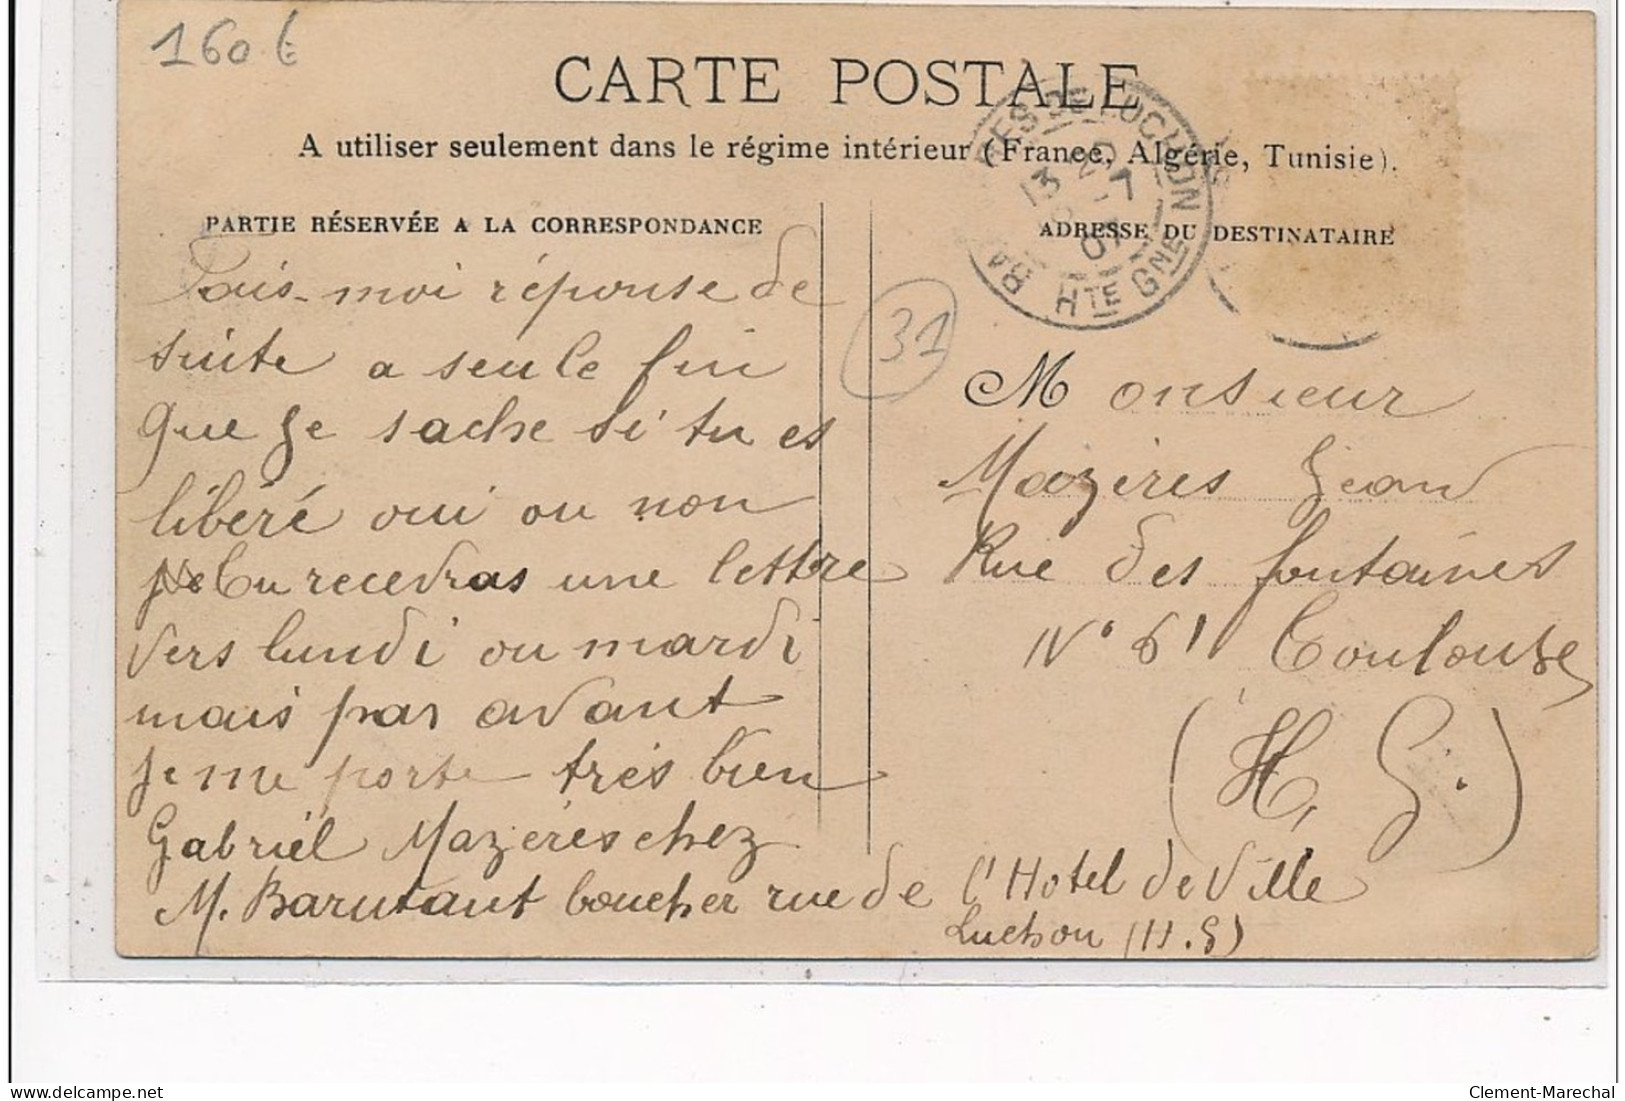 160 €
CARTE POSTALE
A utiliser seulement dans le régime intérieur (France, Algérie, Tunisie).
PARTIE RÉSERVÉE A LA CORRESPONDANCE
Fais-moi réponse de
suite a seule fin
que je sache si tu es
libéré oui ou non
tu recevras une lettre
vers lundi ou mardi
mais par avant
je me porte très bien
Gabriel Mazères chez
M. Barutaut boucher rue de l'Hotel de Ville
Luchon (H. G)
31
ADRESSE DU DESTINATAIRE
Monsieur
Mazères Jean
Rue des fontaines
N° 61 Toulouse
(H. G.)
RES DE LUCHON
13 20
-7
07
HTE GNE
Clement-Marechal
delcampe.net